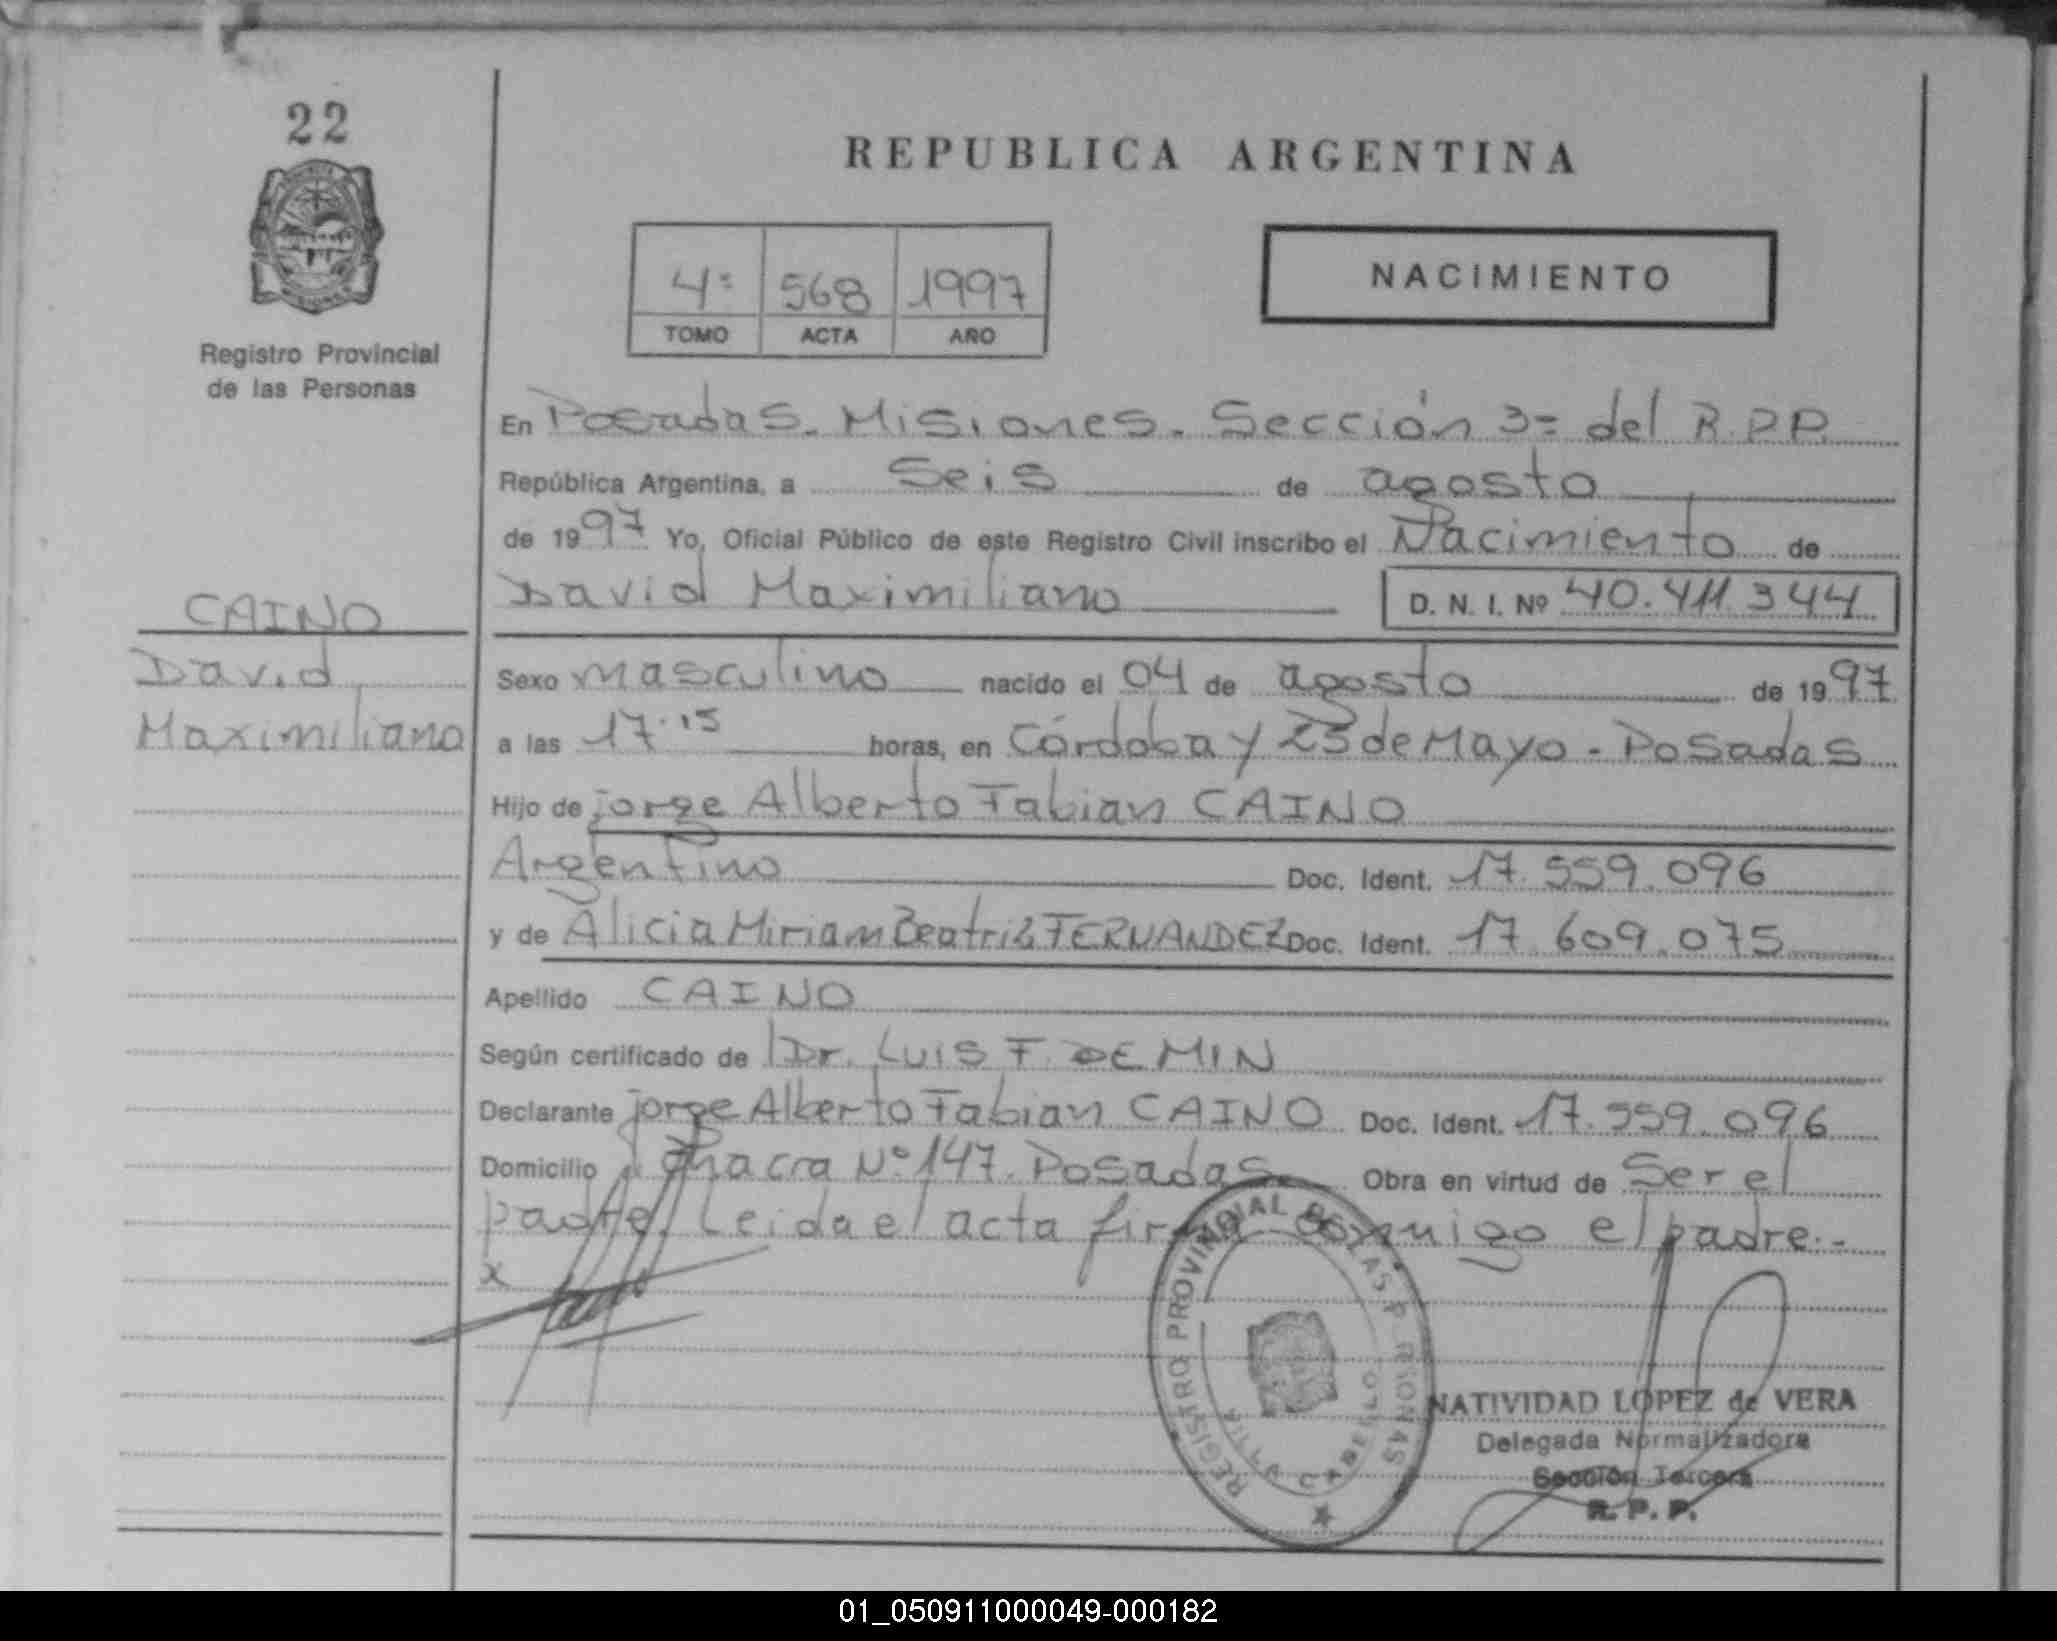 22
REPUBLICA ARGENTINA
4º 568 1997
TOMO ACTA AÑO
NACIMIENTO
Registro Provincial
de las Personas
En Posadas. Misiones. Sección 3º del R.P.P.
República Argentina, a seis de agosto
de 1997 Yo, Oficial Público de este Registro Civil inscribo el Nacimiento de
David Maximiliano D. N. I. Nº 40.411.344
CAINO
David
Maximiliano
Sexo masculino nacido el 04 de agosto de 1997
a las 17.15 horas, en Córdoba y 25 de Mayo - Posadas
Hijo de jorge Alberto Fabian CAINO
Argentino Doc. Ident. 17.559.096
y de Alicia Miriam Beatriz FERNANDEZ Doc. Ident. 17.609.075
Apellido CAINO
Según certificado de Dr. LUIS F. DEMIN
Declarante jorge Alberto Fabian CAINO Doc. Ident. 17.559.096
Domicilio Chacra Nº 147. Posadas Obra en virtud de Ser el
padre. Leida el acta firma conmigo el padre.-
x
REGISTRO PROVINCIAL DE LAS PERSONAS
VILLA CABELLO
NATIVIDAD LOPEZ de VERA
Delegada Normalizadora
Sección Tercera
R. P. P.
01_050911000049-000182